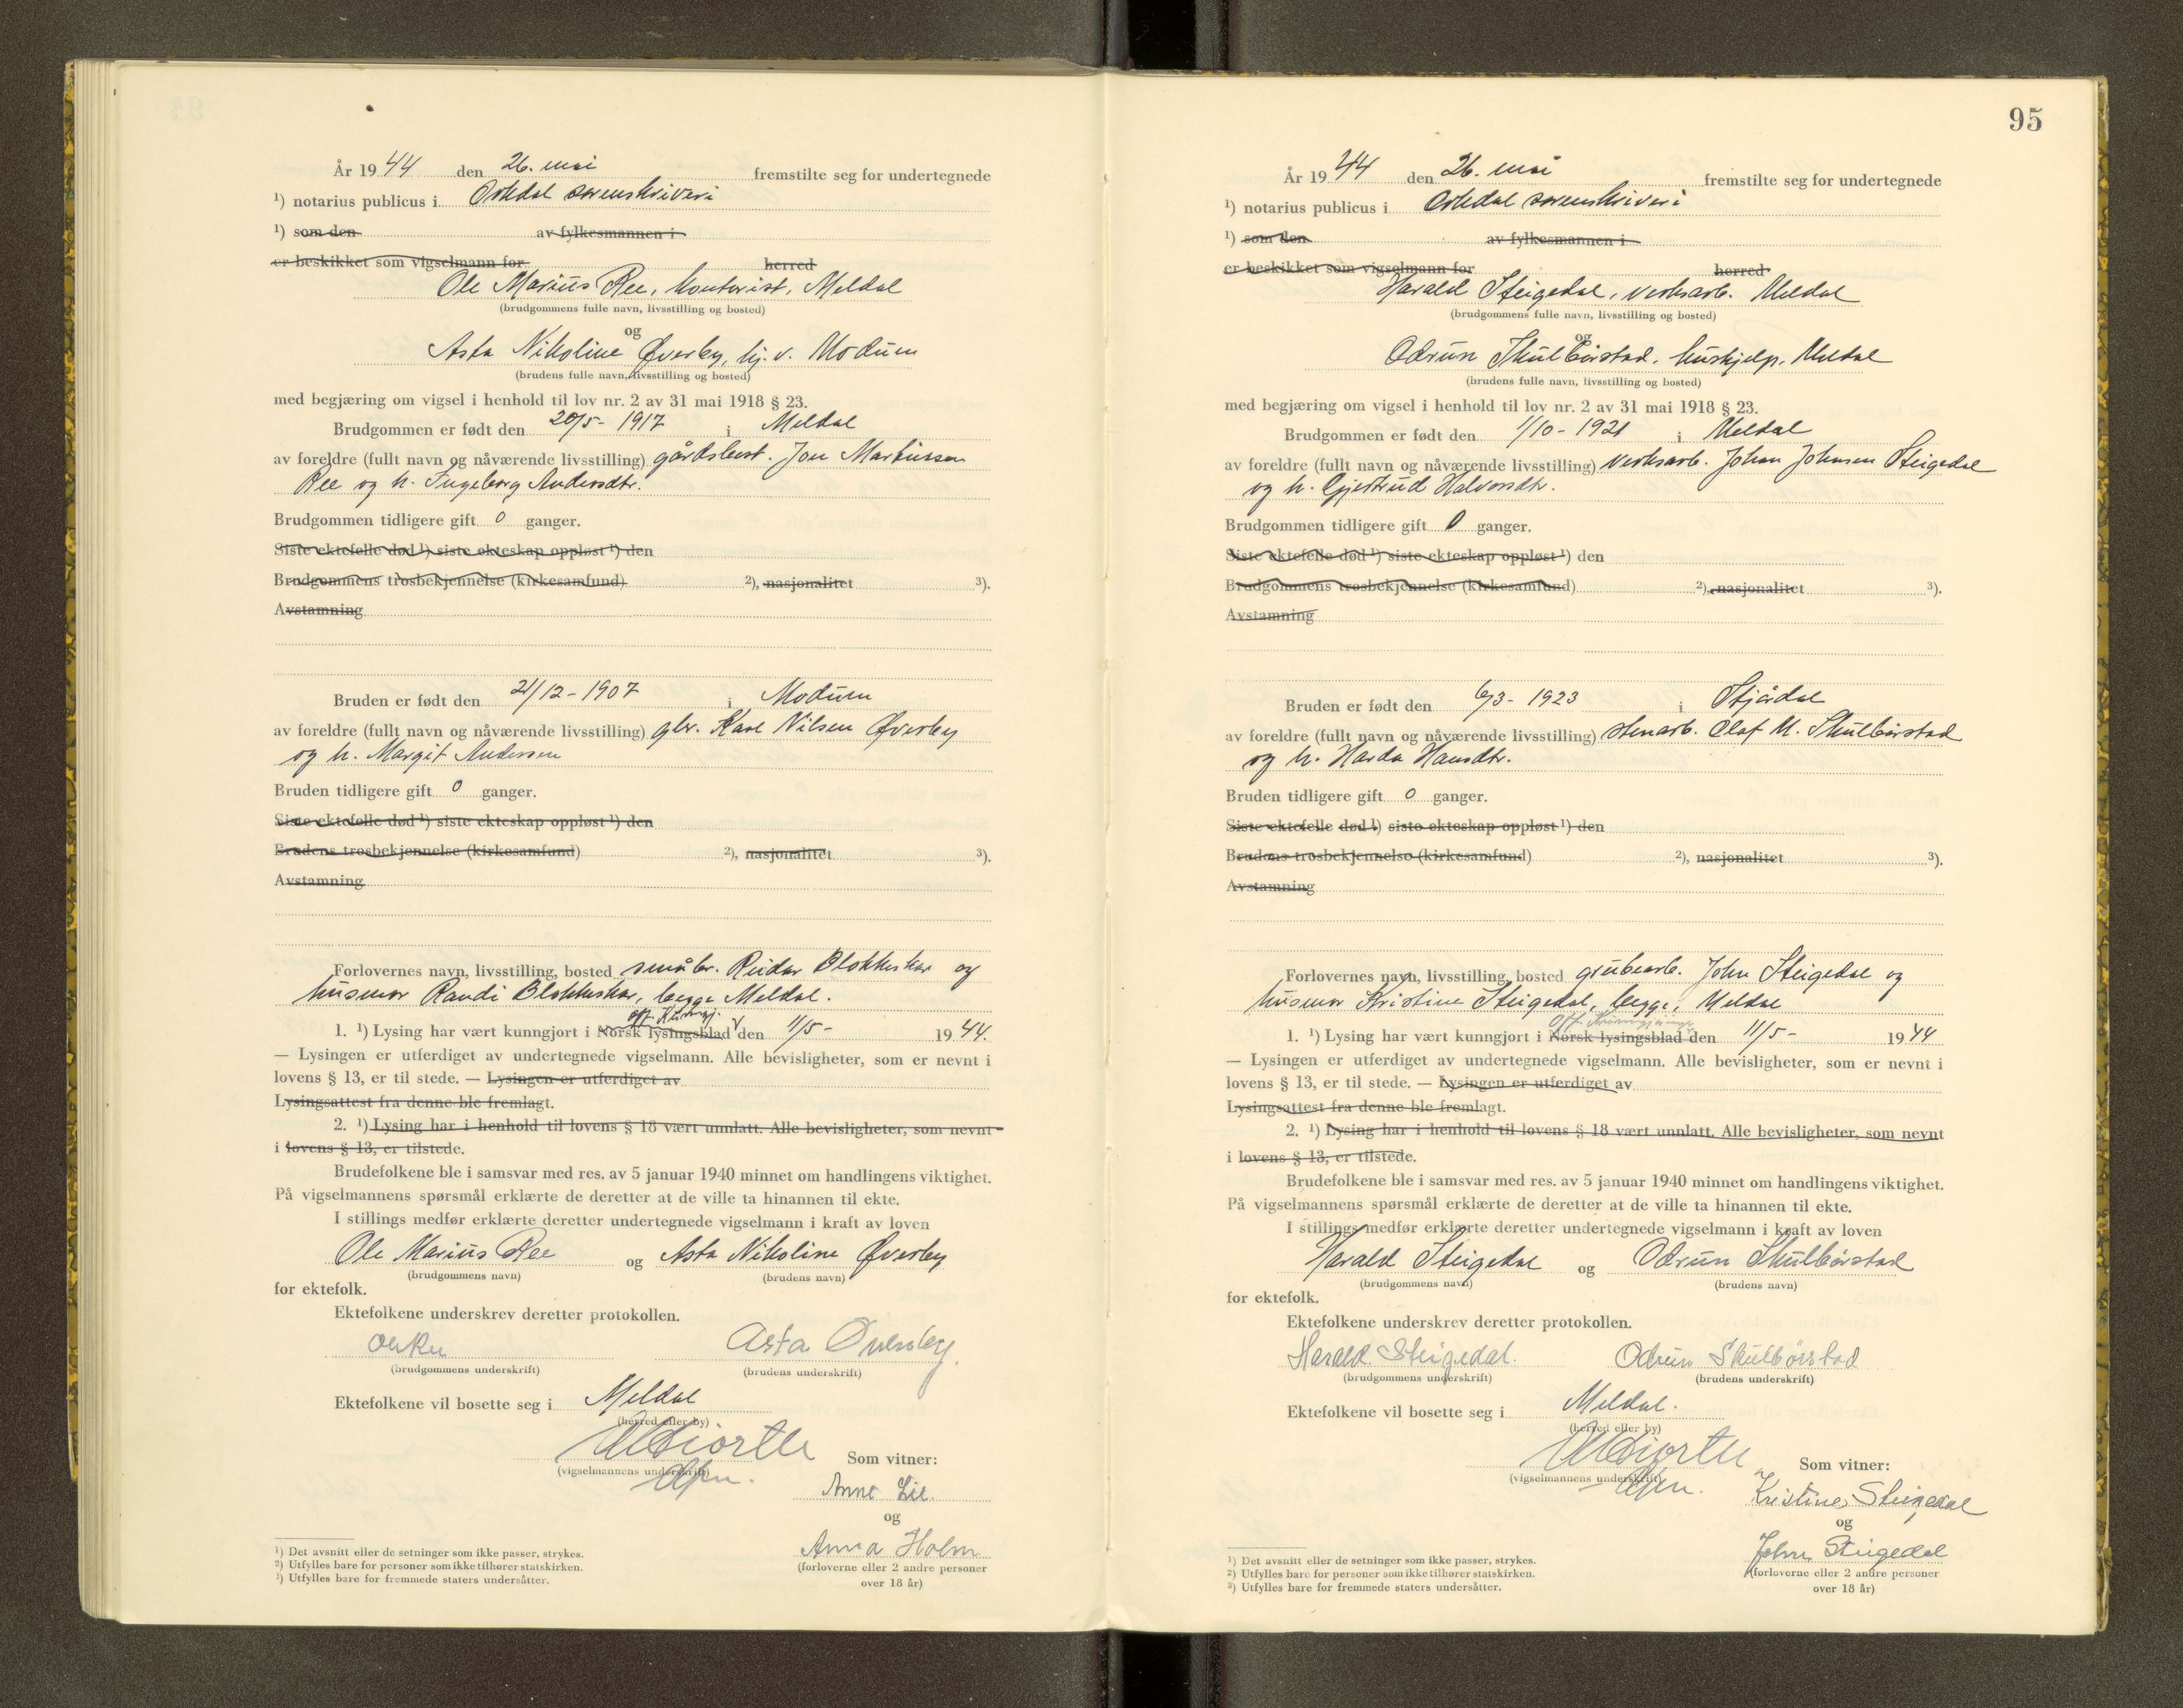 År 1944 den 26. mai fremstilte seg for undertegnede
¹) notarius publicus i Orkdal sorenskriveri
¹) som den av fylkesmannen i
er beskikket som vigselmann for herred
Ole Marius Ree, kontorist, Meldal
(brudgommens fulle navn, livsstilling og bosted)
og
Asta Nikoline Øverby, hj. v. Modum
(brudens fulle navn, livsstilling og bosted)
med begjæring om vigsel i henhold til lov nr. 2 av 31 mai 1918 § 23.
Brudgommen er født den 20/5- 1917 i Meldal
av foreldre (fullt navn og nåværende livsstilling) gårdsbest. Jon Martinsen
Ree og h. Ingeborg Andersdtr.
Brudgommen tidligere gift 0 ganger.
Siste ektefelle død ¹) siste ekteskap oppløst ¹) den
Brudgommens trosbekjennelse (kirkesamfund) ²), nasjonalitet ³).
Avstamning
Bruden er født den 21/12- 1907 i Modum
av foreldre (fullt navn og nåværende livsstilling) gbr. Karl Nilsen Øverby
og h. Margit Andersen
Bruden tidligere gift 0 ganger.
Siste ektefelle død ¹) siste ekteskap oppløst ¹) den
Brudens trosbekjennelse (kirkesamfund) ²), nasjonalitet ³).
Avstamning
Forlovernes navn, livsstilling, bosted småbr. Reidar Blokkskar og
husmor Randi Blokkskar, begge Meldal.
off. Kunngj.
1. ¹) Lysing har vært kunngjort i Norsk lysingsblad den 11/5- 1944.
— Lysingen er utferdiget av undertegnede vigselmann. Alle bevisligheter, som er nevnt i
lovens § 13, er til stede. — Lysingen er utferdiget av
Lysingsattest fra denne ble fremlagt.
2. ¹) Lysing har i henhold til lovens § 18 vært unnlatt. Alle bevisligheter, som nevnt
i lovens § 13, er tilstede.
Brudefolkene ble i samsvar med res. av 5 januar 1940 minnet om handlingens viktighet.
På vigselmannens spørsmål erklærte de deretter at de ville ta hinannen til ekte.
I stillings medfør erklærte deretter undertegnede vigselmann i kraft av loven
Ole Marius Ree og Asta Nikoline Øverby
(brudgommens navn) (brudens navn)
for ektefolk.
Ektefolkene underskrev deretter protokollen.
Asta Øverby.
(brudgommens underskrift) (brudens underskrift)
Ektefolkene vil bosette seg i Meldal
(herred eller by)
(vigselmannens underskrift)
Som vitner:
Anne Lie.
og
Anna Holm
(forloverne eller 2 andre personer
over 18 år)
¹) Det avsnitt eller de setninger som ikke passer, strykes.
²) Utfylles bare for personer som ikke tilhører statskirken.
³) Utfylles bare for fremmede staters undersåtter.
95
År 1944 den 26. mai fremstilte seg for undertegnede
¹) notarius publicus i Orkdal sorenskriveri
¹) som den av fylkesmannen i
er beskikket som vigselmann for herred
Harald Steigedal, verksarb. Meldal
(brudgommens fulle navn, livsstilling og bosted)
og
Odrun Skulbørstad, hushjelp, Meldal
(brudens fulle navn, livsstilling og bosted)
med begjæring om vigsel i henhold til lov nr. 2 av 31 mai 1918 § 23.
Brudgommen er født den 1/10- 1921 i Meldal
av foreldre (fullt navn og nåværende livsstilling) verksarb. Johan Johnsen Steigedal
og h. Gjertrud Halvorsdtr.
Brudgommen tidligere gift 0 ganger.
Siste ektefelle død ¹) siste ekteskap oppløst ¹) den
Brudgommens trosbekjennelse (kirkesamfund) ²), nasjonalitet ³).
Avstamning
Bruden er født den 6/3- 1923 i Stjørdal
av foreldre (fullt navn og nåværende livsstilling) stenarb. Olaf M. Skulbørstad
og h. Harda Hansdtr.
Bruden tidligere gift 0 ganger.
Siste ektefelle død ¹) siste ekteskap oppløst ¹) den
Brudens trosbekjennelse (kirkesamfund) ²), nasjonalitet ³).
Avstamning
Forlovernes navn, livsstilling, bosted grubearb. John Steigedal og
husmor Kristine Steigedal, begge, Meldal
Off. Kunngjøringer
1. ¹) Lysing har vært kunngjort i Norsk lysingsblad den 11/5- 1944
— Lysingen er utferdiget av undertegnede vigselmann. Alle bevisligheter, som er nevnt i
lovens § 13, er til stede. — Lysingen er utferdiget av
Lysingsattest fra denne ble fremlagt.
2. ¹) Lysing har i henhold til lovens § 18 vært unnlatt. Alle bevisligheter, som nevnt
i lovens § 13, er tilstede.
Brudefolkene ble i samsvar med res. av 5 januar 1940 minnet om handlingens viktighet.
På vigselmannens spørsmål erklærte de deretter at de ville ta hinannen til ekte.
I stillings medfør erklærte deretter undertegnede vigselmann i kraft av loven
Harald Steigedal og Odrun Skulbørstad
(brudgommens navn) (brudens navn)
for ektefolk.
Ektefolkene underskrev deretter protokollen.
Harald Steigedal. Odrun Skulbørstad
(brudgommens underskrift) (brudens underskrift)
Ektefolkene vil bosette seg i Meldal.
(herred eller by)
(vigselmannens underskrift)
Som vitner:
Kristine Steigedal
og
John Steigedal
(forloverne eller 2 andre personer
over 18 år)
¹) Det avsnitt eller de setninger som ikke passer, strykes.
²) Utfylles bare for personer som ikke tilhører statskirken.
³) Utfylles bare for fremmede staters undersåtter.